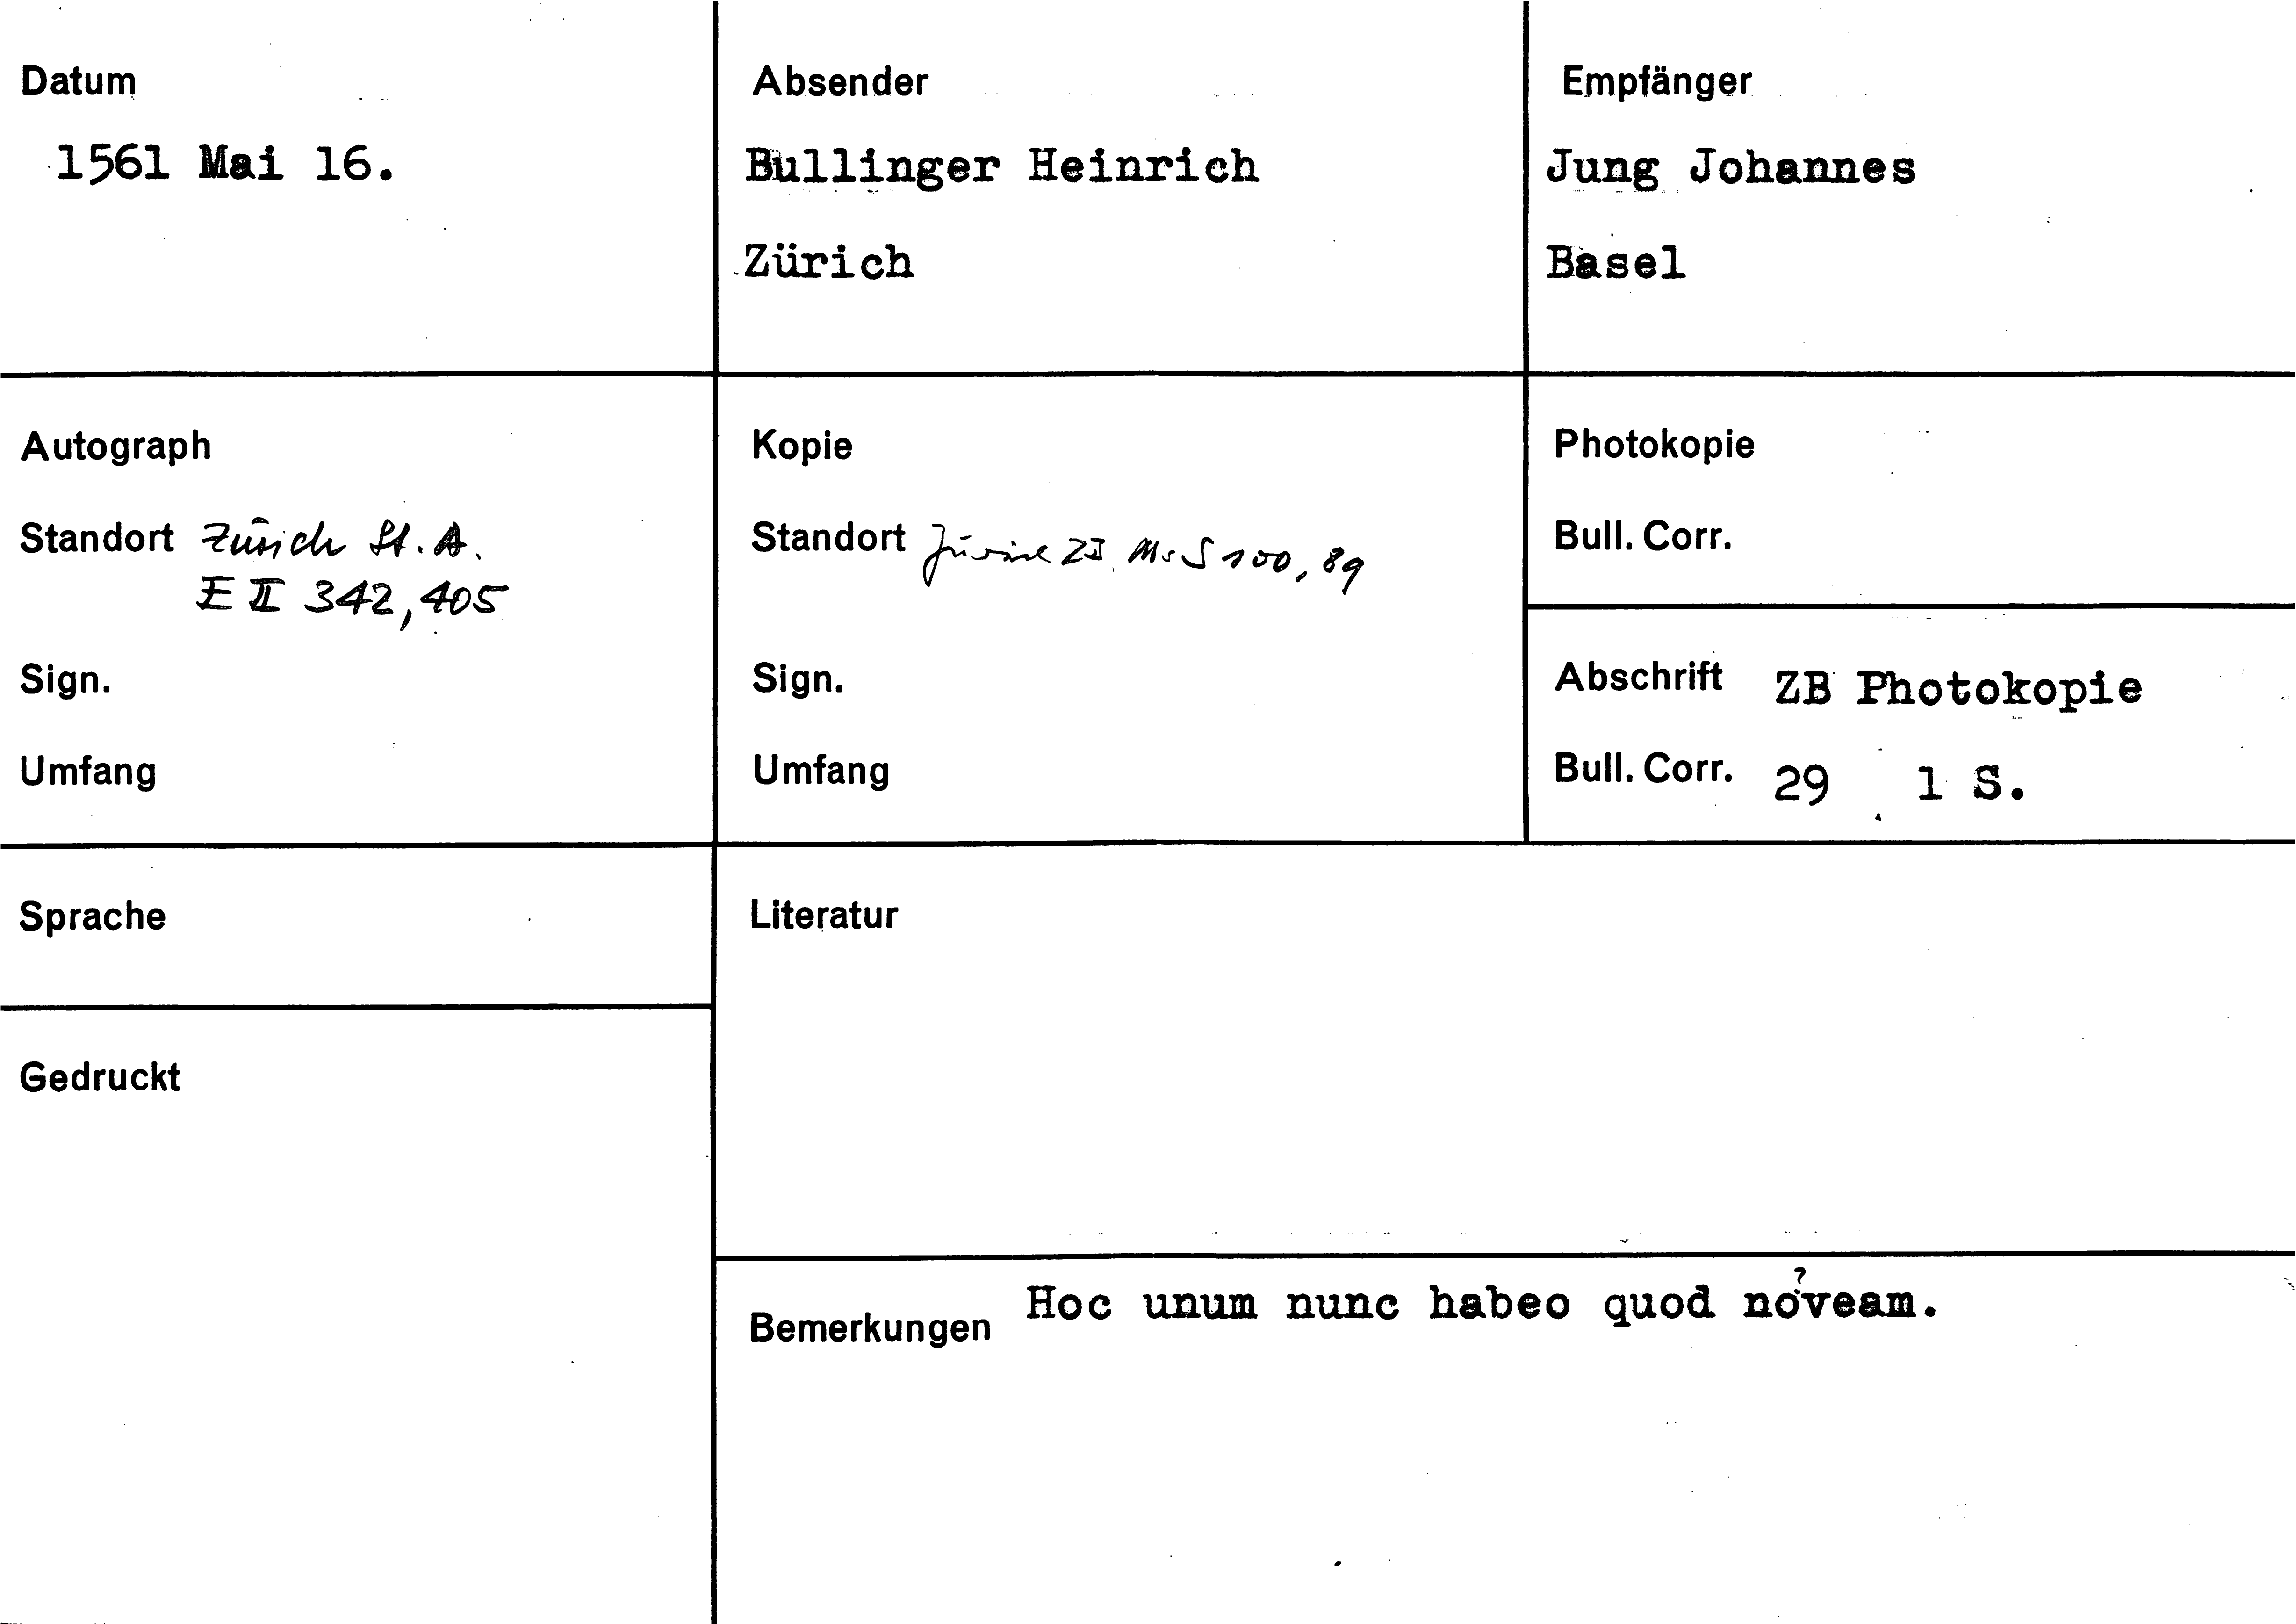 Datum
1561 Mai 16.
Absender
Bullinger Heinrich
Zürich
Empfänger
Jung Johannes
Basel
Autograph
Standort Zürich St. A.
E II 342, 405
Sign.
Umfang
Kopie
Standort Zürich ZB, Ms S 100, 89
Sign.
Umfang
Photokopie
Bull. Corr.
Abschrift ZB Photokopie
Bull. Corr. 29 1 S.
Sprache
Gedruckt
Literatur
?
Bemerkungen Hoc unum nunc habeo quod noveam.